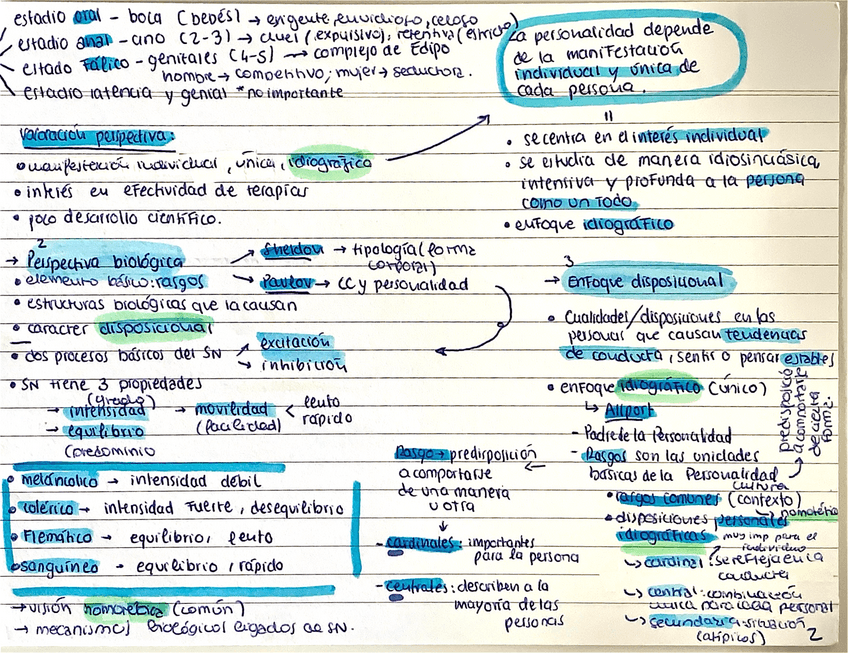 estadio oral - boca (bebés) → exigente, envidioso, celoso
estadio anal - ano (2-3) → cruel (expulsivo); retentiva
estado Fálico - genitales (4-5) → complejo de Edipo
hombre → competitivo; mujer → seductora.
estadio latencia y genital *no importante
La personalidad depende
de la manifestación
individual y única de
cada persona.
Valoración perspectiva:
• manifestación individual, única, idiografica
• interés en efectividad de terapias
• poco desarrollo científico.
• se centra en el interés individual
• se estudia de manera idiosincrásica,
intensiva y profunda a la persona
como un todo
• enfoque idiográfico
2
→ Perspectiva biológica
→ Sheldon → tipología (forma
corporal)
• elemento básico: rasgos
→ Pavlov → CC y personalidad
• estructuras biológicas que la causan
• caracter disposicional
• dos procesos básicos del SN
→ excitación
→ inhibición
• SN tiene 3 propiedades
(grado)
→ intensidad → movilidad < lento
(facilidad) rápido
→ equilibrio
(predominio
• melancolico → intensidad débil
• colérico → intensidad fuerte, desequilibrio
• Flemático → equilibrio, lento
• sanguíneo → equilibrio, rápido
→ visión nomotetica (común)
→ mecanismos biológicos ligados al SN.
3
→ Enfoque disposicional
• Cualidades/disposiciones en las
personas que causan tendencias
de conducta, sentir o pensar estables
predisposició
a comportarse
de cierta
forma.
• enfoque idiográfico (único)
↳ Allport
- Padre de la Personalidad
- Rasgos son las unidades
básicas de la Personalidad
Rasgo → predisposición
a comportarse
de una manera
u otra
- cardinales: importantes
para la persona
- centrales: describen a la
mayoría de las
personas
cultura
• rasgos comunes (contexto)
↳ nomotética
• disposiciones personales
idiográficas muy imp para el
individuo
↳ cardinal: se refleja en la
conducta
↳ central: combinación
única para cada personal
↳ secundaria: situación
(atípicos)
2